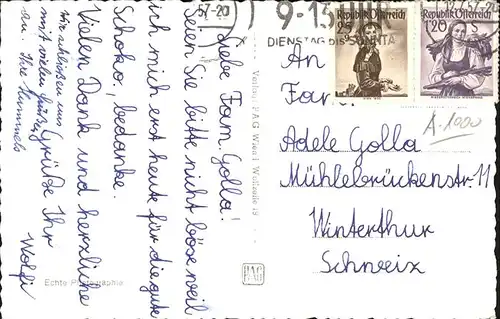 Liebe Fam. Golla!
Seien Sie bitte nicht böse weil
ich mich erst heute für die gute
Schoko. bedanke.
Vielen Dank und herzliche
Grüße Ihr
Wolfi
Wir schließen uns
mit vielen
an. Ihre Hummels
Echte Photographie
Verlag PAG Wien I, Wollzeile 19
PAG
57-20
9-13 UHR
DIENSTAG BIS SONNTA
Republik Österreich
Republik Österreich
1.20 S
An
Fam.
Adele Golla
Mühlebrückenstr. 11
Winterthur
Schweiz
A.1900